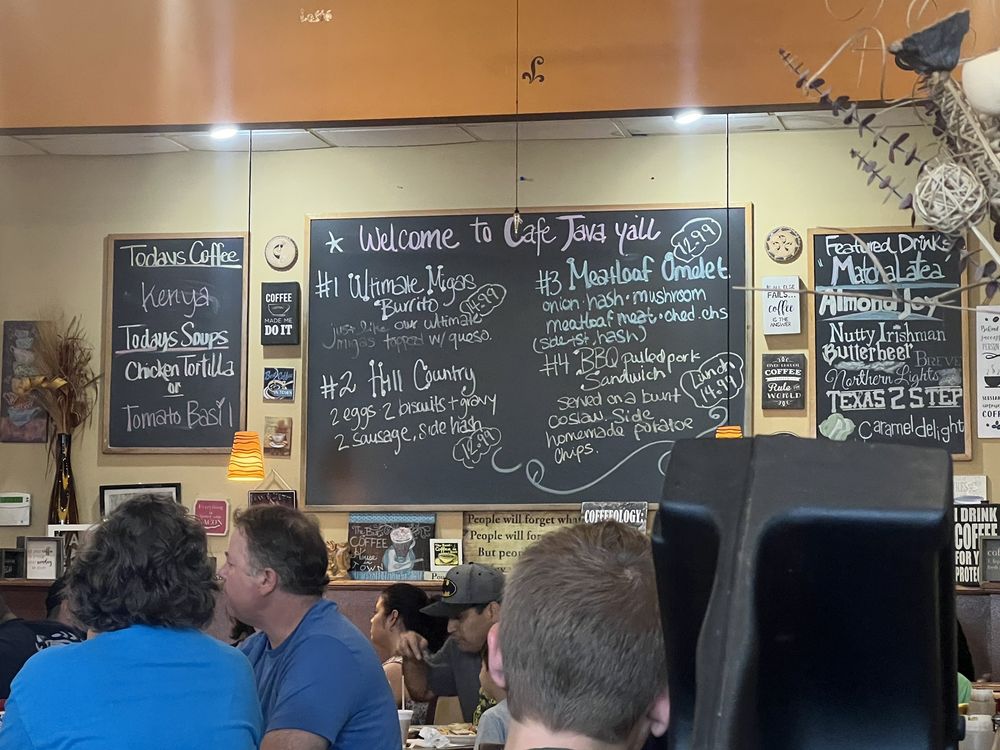 Todays Coffee
Kenya
Todays Soups
Chicken Tortilla
or
Tomato Basil
COFFEE
MADE ME
DO IT
Welcome to Cafe Java y'all
#1 Ultimate Migas
Burrito 14.99
just like our ultimate
migas topped w/ queso.
#2 Hill Country
2 eggs 2 biscuits + gravy
2 sausage, side hash
12.99
12.99
#3 Meatloaf Omelet
onion hash · mushroom
meatloaf meat · ched. chs
(side-tst, hash)
#4 BBQ pulled pork
Sandwich
Lunch
14.99
served on a bunt
coslaw. Side
homemade potatoe
chips.
FAILS...
coffee
IS THE
ANSWER
COFFEE
Rule the
WORLD
Featured Drinks
Matcha Latea
Almond Joy
Nutty Irishman
Butterbeer BREVE
Northern Lights
TEXAS 2 STEP
Caramel delight
BACON
The Best
COFFEE
House
in TOWN
People will forget what
People will forget
But peop
COFFEEOLOGY:
I DRINK
COFFEE
FOR Y
PROTEC